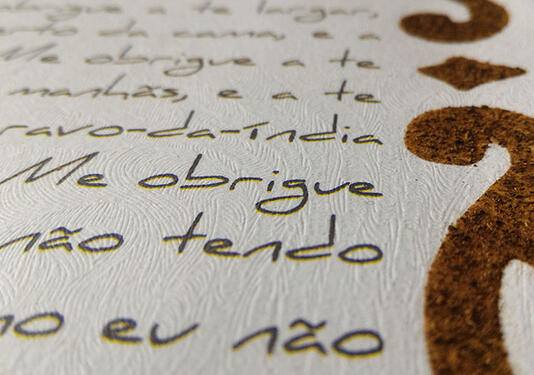 obrigue a te largar,
da cama, e a
Me obrigue a te
manhãs, e a te
ravo-da-índia
Me obrigue
não tendo
no eu não